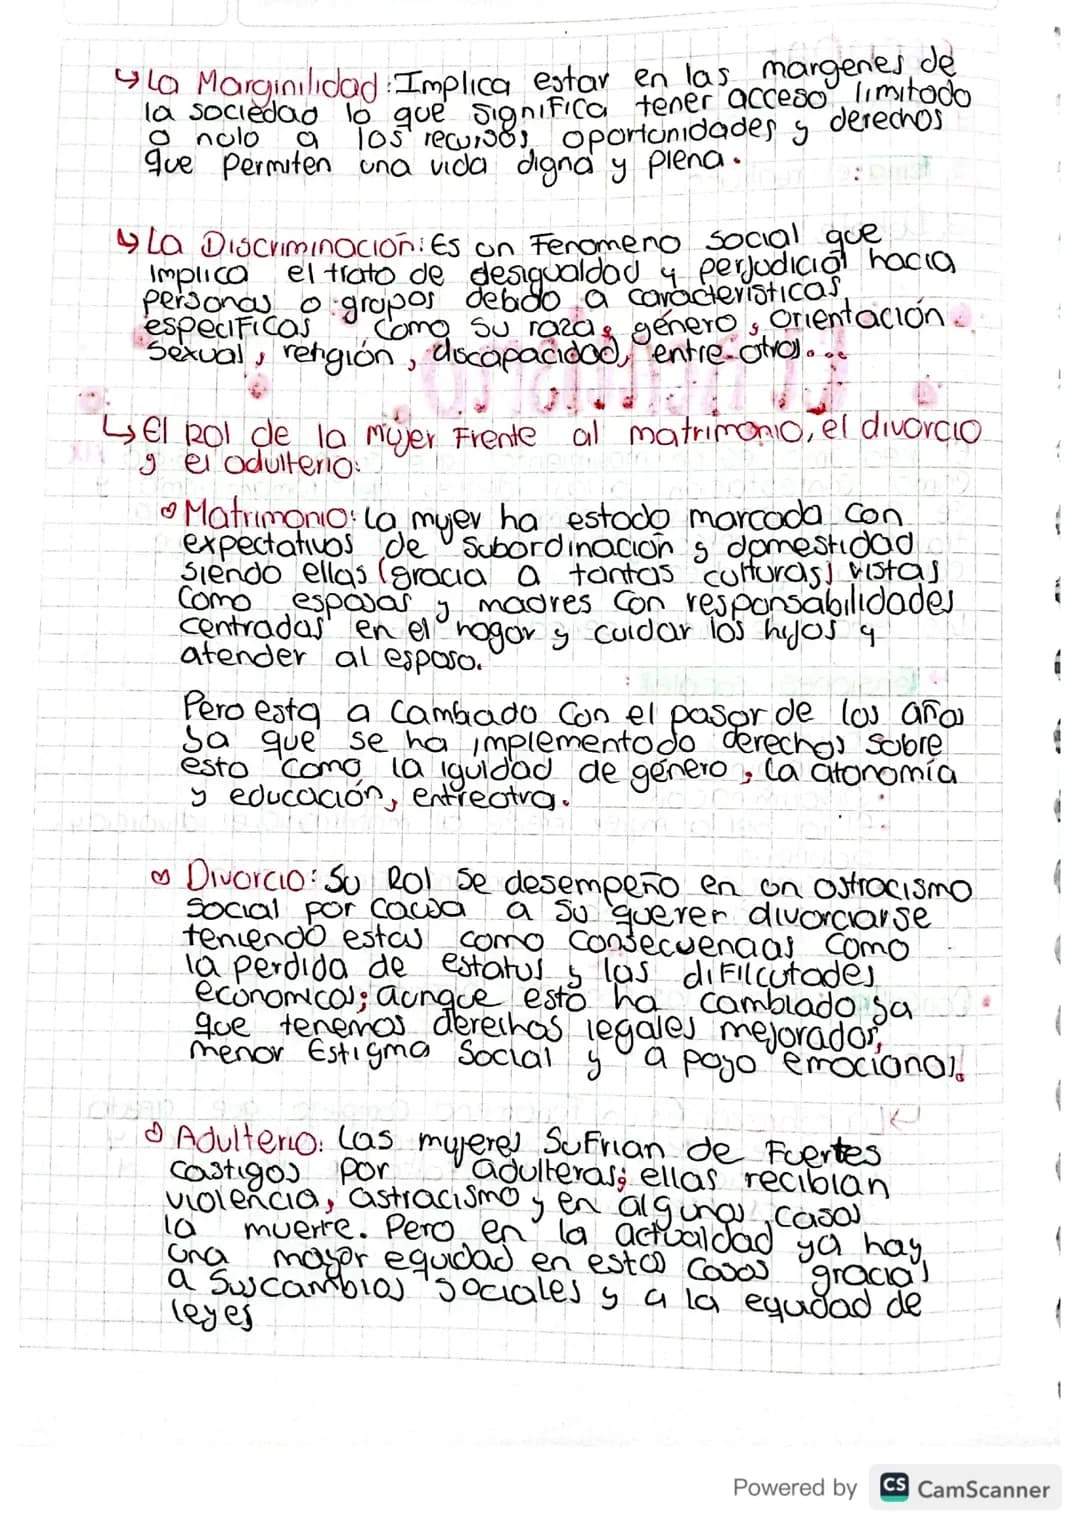 ↳ La Marginilidad: Implica estar en las margenes de
la sociedad lo que significa tener acceso limitado
o nulo a los recursos, oportunidades y derechos
que permiten una vida digna y plena.
↳ La Discriminación: Es un Fenomeno social que
implica el trato de desigualdad y perjudicial hacia
personas o grupos debido a caracteristicas
especificas como su raza, género, orientación
sexual, religión, discapacidad, entre otros...
↳ El Rol de la mujer Frente al matrimonio, el divorcio
y el adulterio:
Matrimonio: La mujer ha estado marcada con
expectativas de subordinación y domestidad
siendo ellas (gracia a tantas culturas) vistas
como esposas y madres con responsabilidades
centradas en el hogar y cuidar los hijos y
atender al esposo.
Pero esta a cambiado con el pasar de los años
ya que se ha implementado derechos sobre
esto como la iguidad de género, la atonomía
y educación, entre otra.
Divorcio: Su Rol se desempeño en un ostracismo
social por causa a su querer divorciarse
teniendo estas como consecuencias como
la perdida de estatus y las difilcutades
economicas; aunque esto ha cambiado ya
que tenemos derechos legales mejorados,
menor Estigma Social y a poyo emocional.
Adulterio: Las mujeres Sufrian de Fuertes
castigos por adulteras; ellas recibian
violencia, astracismo y en algunos casos
la muerte. Pero en la actualdad ya hay
una mayor equidad en estos casos gracias
a sus cambios sociales y a la equidad de
leyes
Powered by CS CamScanner